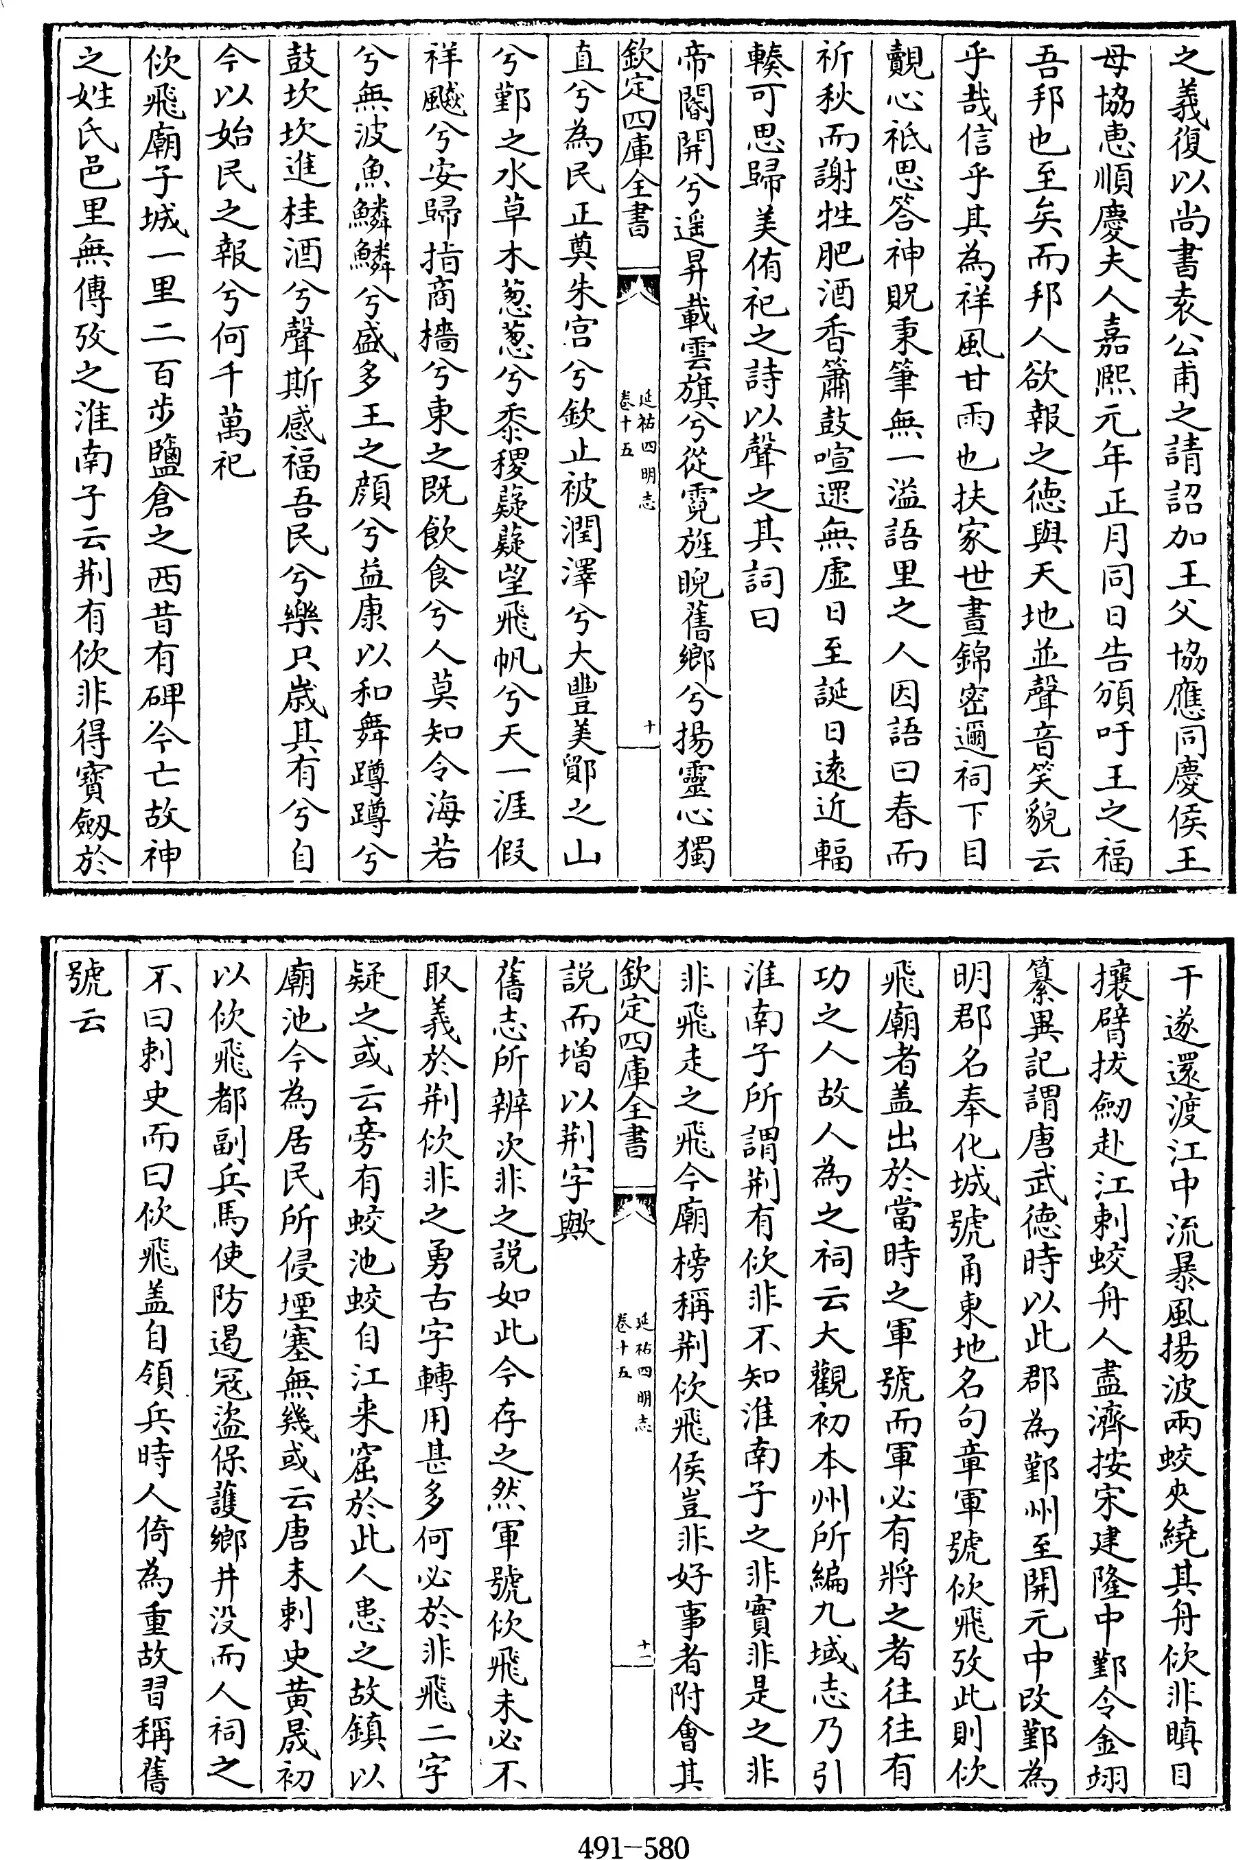 之義復以尚書袁公甫之請詔加王父協應同慶侯王
母協惠順慶夫人嘉熙元年正月同日告頒吁王之福
吾邦也至矣而邦人欲報之德與天地並聲音笑貌云
乎哉信乎其為祥風甘雨也扶家世晝錦密邇祠下目
覿心祗思答神貺秉筆無一溢語里之人因語曰春而
祈秋而謝牲肥酒香簫鼓喧還無虛日至誕日遠近輻
輳可思歸美侑祀之詩以聲之其詞曰
帝閽開兮遥昇載雲旗兮從霓旌睨舊鄉兮揚靈心獨
欽定四庫全書
延祐四明志
卷十五
十
直兮為民正奠朱宫兮欽止被潤澤兮大豐美鄮之山
兮鄞之水草木葱葱兮黍稷薿薿望飛帆兮天一涯假
祥飈兮安歸指商檣兮東之既飲食兮人莫知令海若
兮無波魚鱗鱗兮盛多王之顔兮益康以和舞蹲蹲兮
鼓坎坎進桂酒兮聲斯感福吾民兮樂只嵗其有兮自
今以始民之報兮何千萬祀
佽飛廟子城一里二百步鹽倉之西昔有碑今亡故神
之姓氏邑里無傳攷之淮南子云荆有佽非得寳劒於
干遂還渡江中流暴風揚波兩蛟夾繞其舟佽非瞋目
攘臂拔劒赴江刺蛟舟人盡濟按宋建隆中鄞令金翊
纂異記謂唐武德時以此郡為鄞州至開元中改鄞為
明郡名奉化城號甬東地名句章軍號佽飛攷此則佽
飛廟者盖出於當時之軍號而軍必有將之者往往有
功之人故人為之祠云大觀初本州所編九域志乃引
淮南子所謂荆有佽非不知淮南子之非實非是之非
非飛走之飛今廟榜稱荆佽飛侯豈非好事者附會其
欽定四庫全書
延祐四明志
卷十五
十一
説而増以荆字歟
舊志所辨次非之説如此今存之然軍號佽飛未必不
取義於荆佽非之勇古字轉用甚多何必於非飛二字
疑之或云旁有蛟池蛟自江來窟於此人患之故鎮以
廟池今為居民所侵堙塞無幾或云唐末刺史黄晟初
以佽飛都副兵馬使防遏寇盗保護鄉井没而人祠之
不曰刺史而曰佽飛盖自領兵時人倚為重故習稱舊
號云
491-580